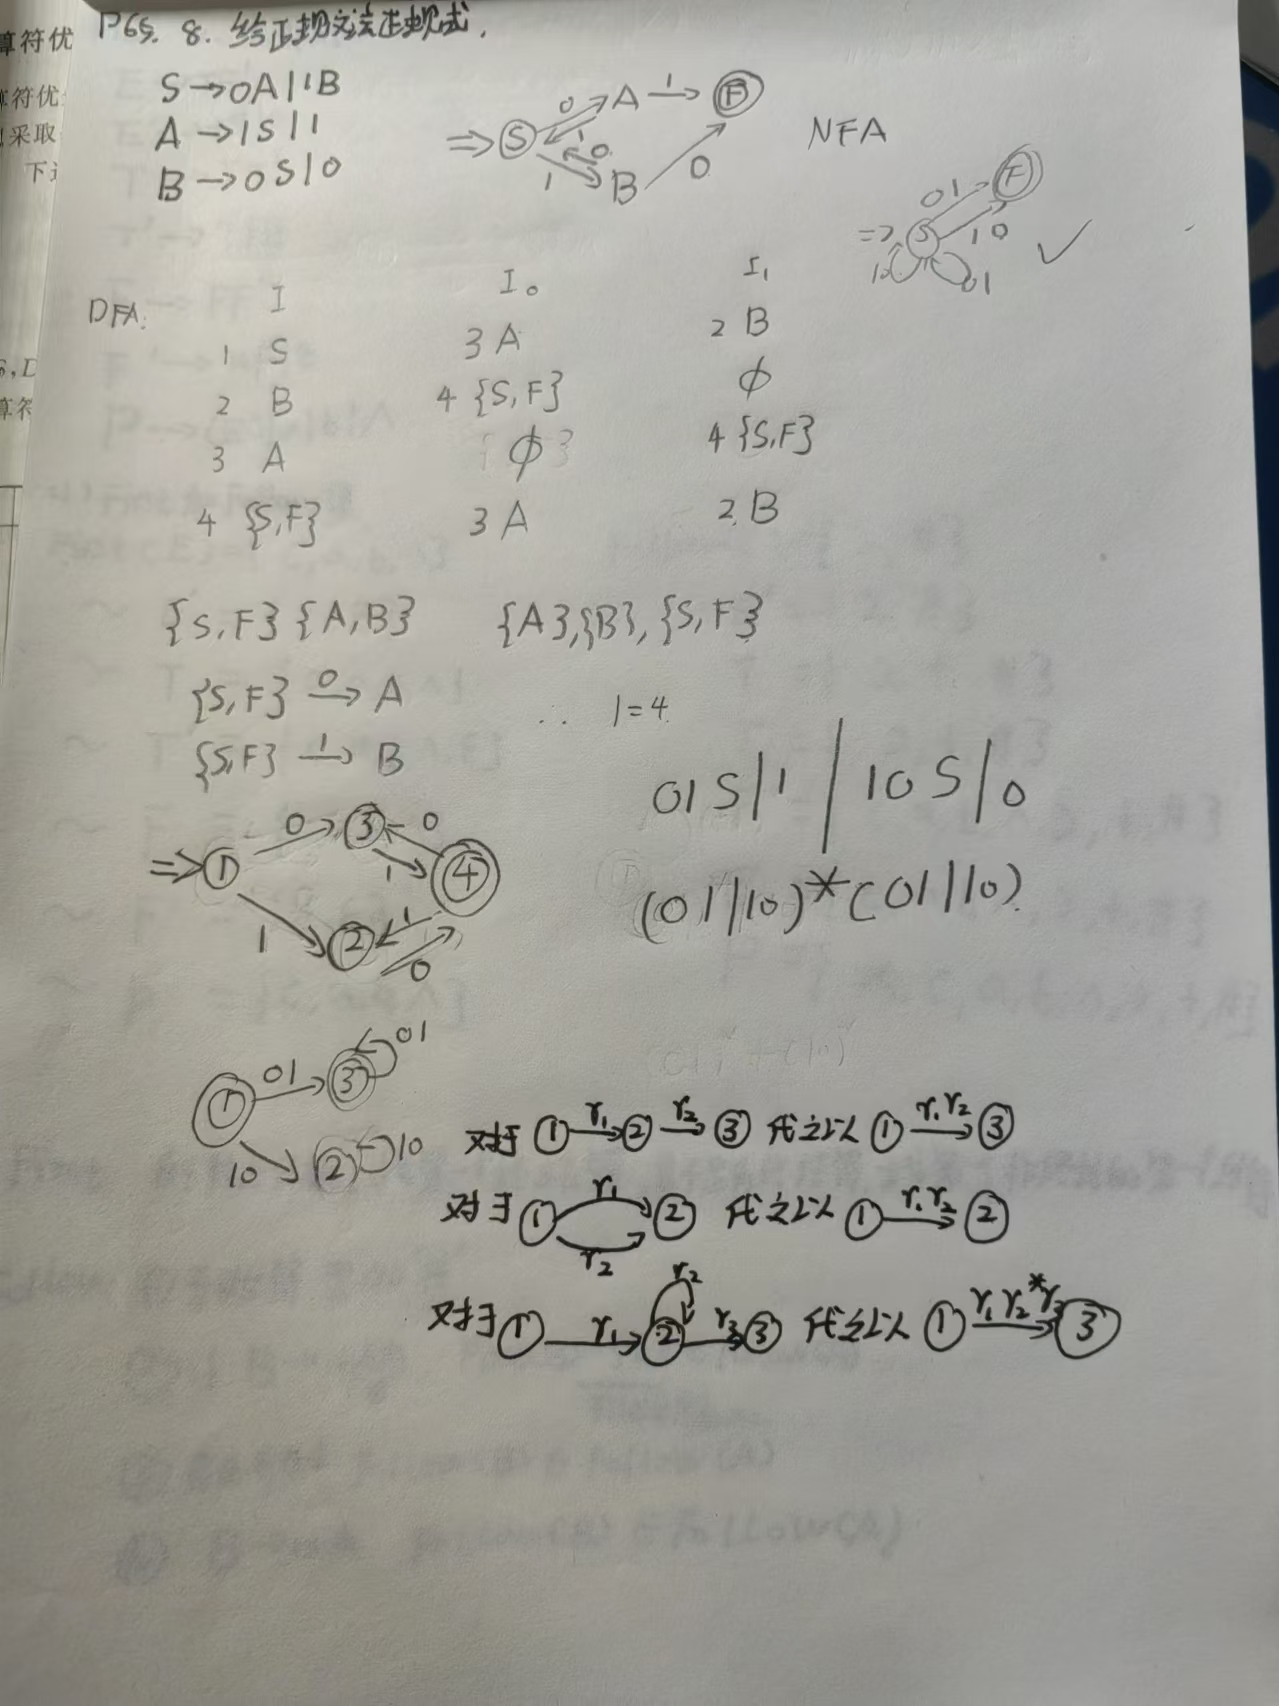 算符优
P65. 8. 给正规文法正规式.
算符优
S→0A|1B
A→1S|1
B→0S|0
采取
下
⇒ S 0 A 1 F
1 0
1 B 0
NFA
⇒ S 01 F
10
10 01 ✓
DFA:
I I₀ I₁
1 S 3 A 2 B
2 B 4 {S,F} ϕ
3 A ϕ 4 {S,F}
4 {S,F} 3 A 2 B
{S,F} {A,B} {A},{B},{S,F}
{S,F} 0→ A
∴ 1=4
{S,F} 1→ B
01S|1 | 10S|0
(01|10)*(01|10)
⇒ ① 0 ③ 0
1 ④
1 ② 1
0
① 01 ③ 01
10 ② 10
对于 ① r₁→ ② r₂→ ③ 代之以 ① r₁r₂→ ③
对于 ① r₁ r₂ ② 代之以 ① r₁r₂→ ②
对于 ① r₁→ ② r₂ r₃→ ③ 代之以 ① r₁r₂*r₃→ ③